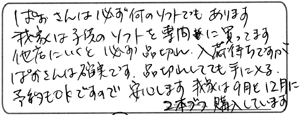 ぱぉさんは必ず何のソフトでもあります
我家は子供のソフトを専門に買ってます
他店にいくと必ず品切れ、入荷待ちですが
ぱぉさんは確実です。品切れしてても手に入る。
予約もOKですので安心します 我家は9月と12月に
2本づつ購入しています